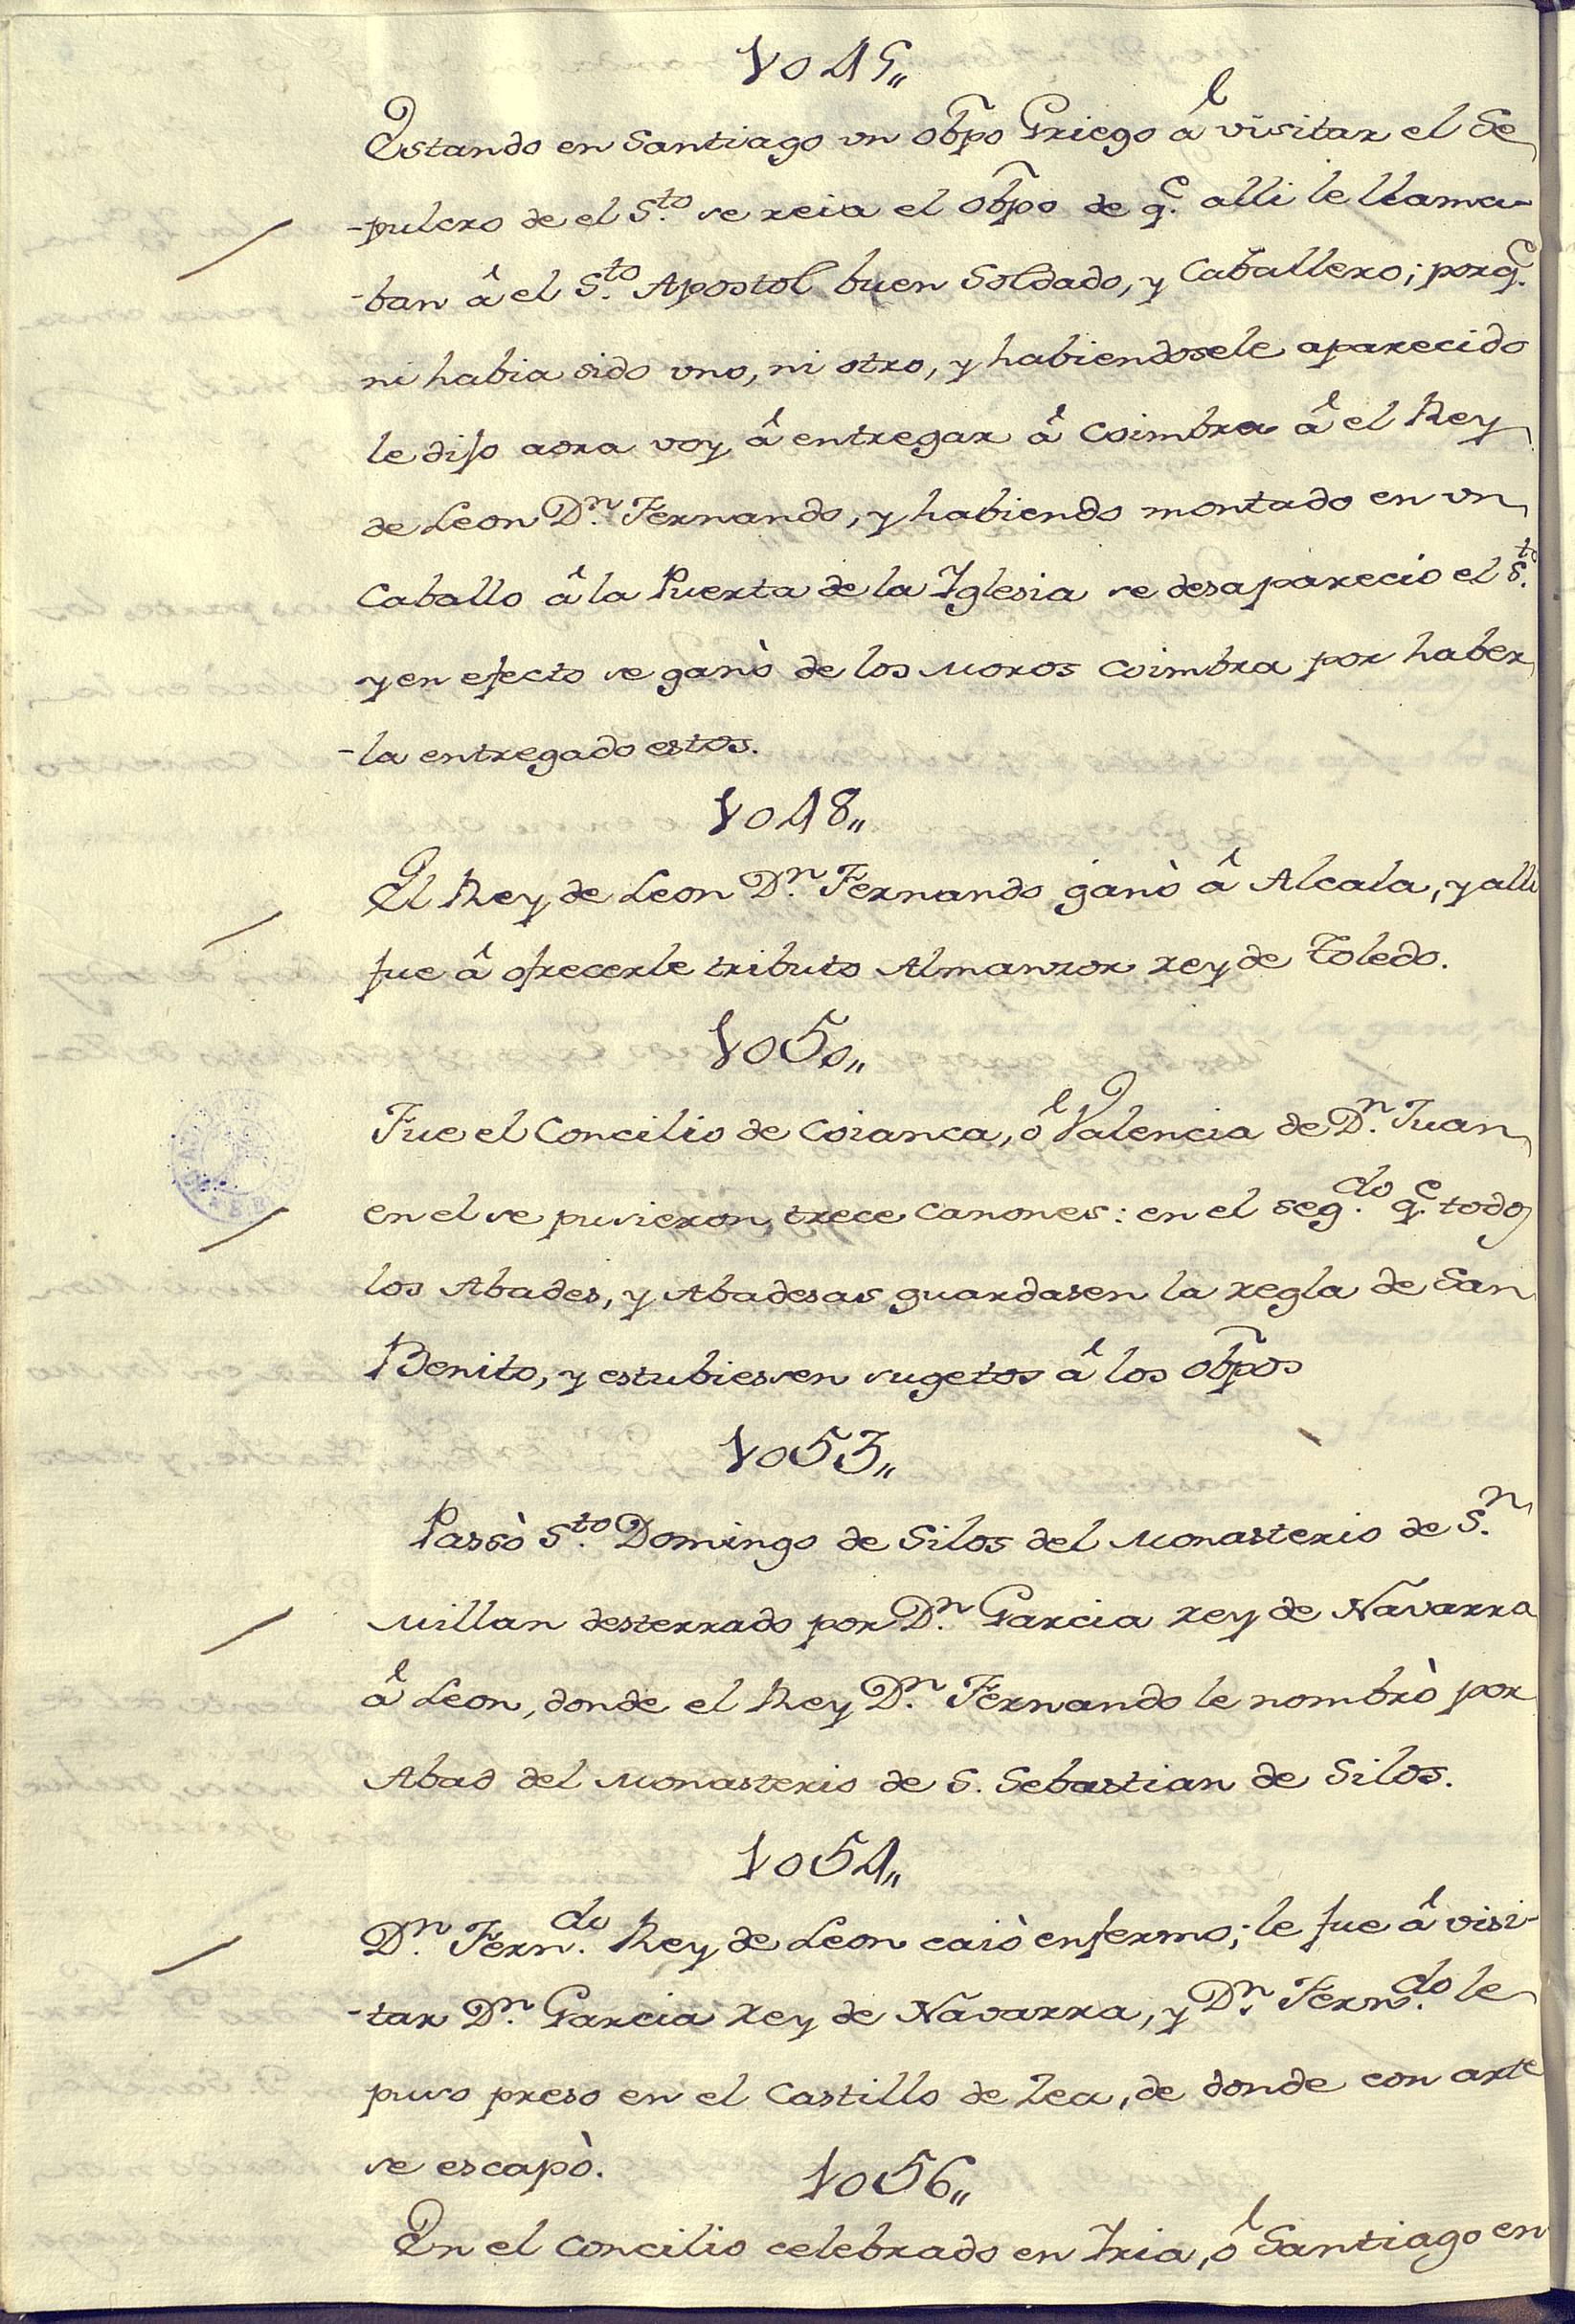 1045„
Estando en Santiago vn obpo Griego â visitar el Se
-pulcro de el S.to se reia el obpo de q.e alli le llama-
-ban â el S.to Apostol buen Soldado, y Caballero; porq.e
ni habia sido vno, ni otro, y habiendosele aparecido
le dijo aora voy â entregar â Coimbra â el Rey
de Leon D.n Fernando, y habiendo montado en vn
Caballo â la Puerta de la Yglesia se desaparecio el S.to
y en efecto se ganò de los Moros Coimbra por haber
-la entregado estos.
1048„
El Rey de Leon D.n Fernando ganò â Alcala, y alli
fue â ofrecerle tributo Almanzor rey de Toledo.
1050„
Fue el Concilio de Coianca, ô Valencia de D.n Juan
en el se pusieron trece canones: en el seg.do q.e todos
los Abades, y Abadesas guardasen la regla de San
Benito, y estubiessen sugetos â los obpos
1053„
Passò S.to Domingo de Silos del Monasterio de S.n
Millan desterrado por D.n Garcia rey de Navarra
â Leon, donde el Rey D.n Fernando le nombrò por
Abad del Monasterio de S. Sebastian de Silos.
1054„
D.n Fern.do Rey de Leon caiò enfermo; le fue â visi-
-tar D.n Garcia rey de Navarra, y D.n Fern.do le
puso preso en el Castillo de Zea, de donde con arte
se escapò.
1056„
En el Concilio celebrado en Iria, ô Santiago en